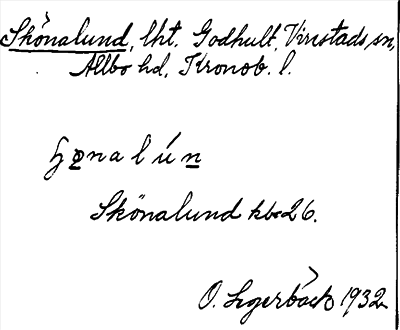 Skönalund, lht. Godhult, Virestads sn,
Allbo hd, Kronob. l.
ɧø̱nalún̲
Skönalund kbc 26.
O. Lgerbäck 1932